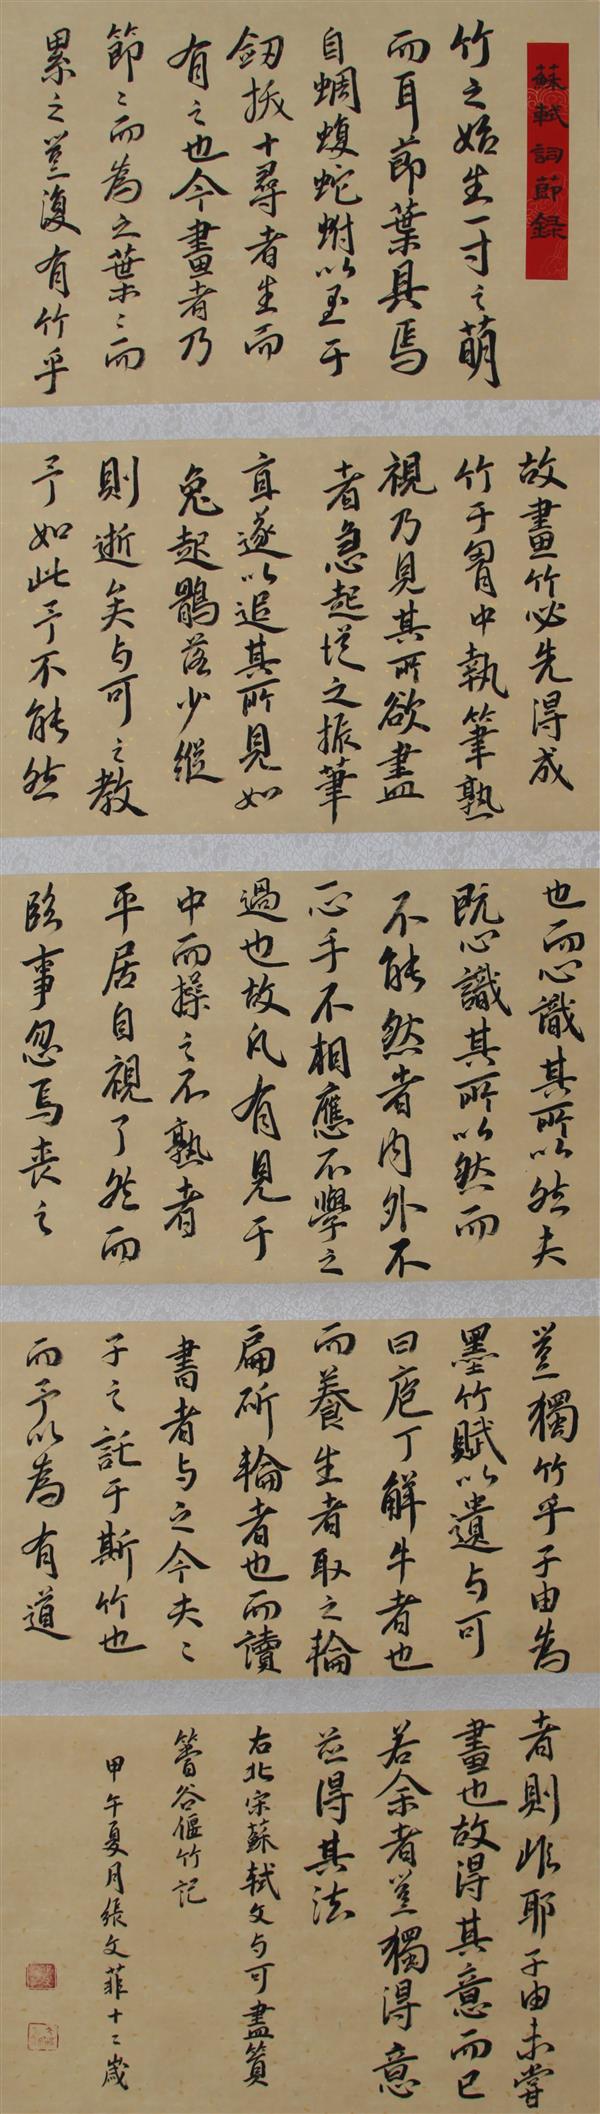 蘇軾詞節錄
竹之始生一寸之萌
而耳節葉具焉
自蜩蝮蛇蚹以至于
劒拔十尋者生而
有之也今畫者乃
節〻而為之葉〻而
累之豈復有竹乎
故畫竹必先得成
竹于胷中執筆熟
視乃見其所欲畫
者急起從之振筆
直遂以追其所見如
兔起鶻落少縱
則逝矣与可之教
予如此予不能然
也而心識其所以然夫
既心識其所以然而
不能然者内外不
一心手不相應不學之
過也故凡有見于
中而操之不熟者
平居自視了然而
臨事忽焉喪之
豈獨竹乎子由為
墨竹賦以遺与可
曰庖丁解牛者也
而養生者取之輪
扁斫輪者也而讀
書者与之今夫〻
子之託于斯竹也
而予以為有道
者則非耶子由未嘗
畫也故得其意而已
若余者豈獨得意
並得其法
右北宋蘇軾文与可畫篔
簹谷偃竹記
甲午夏月張文菲十二歲